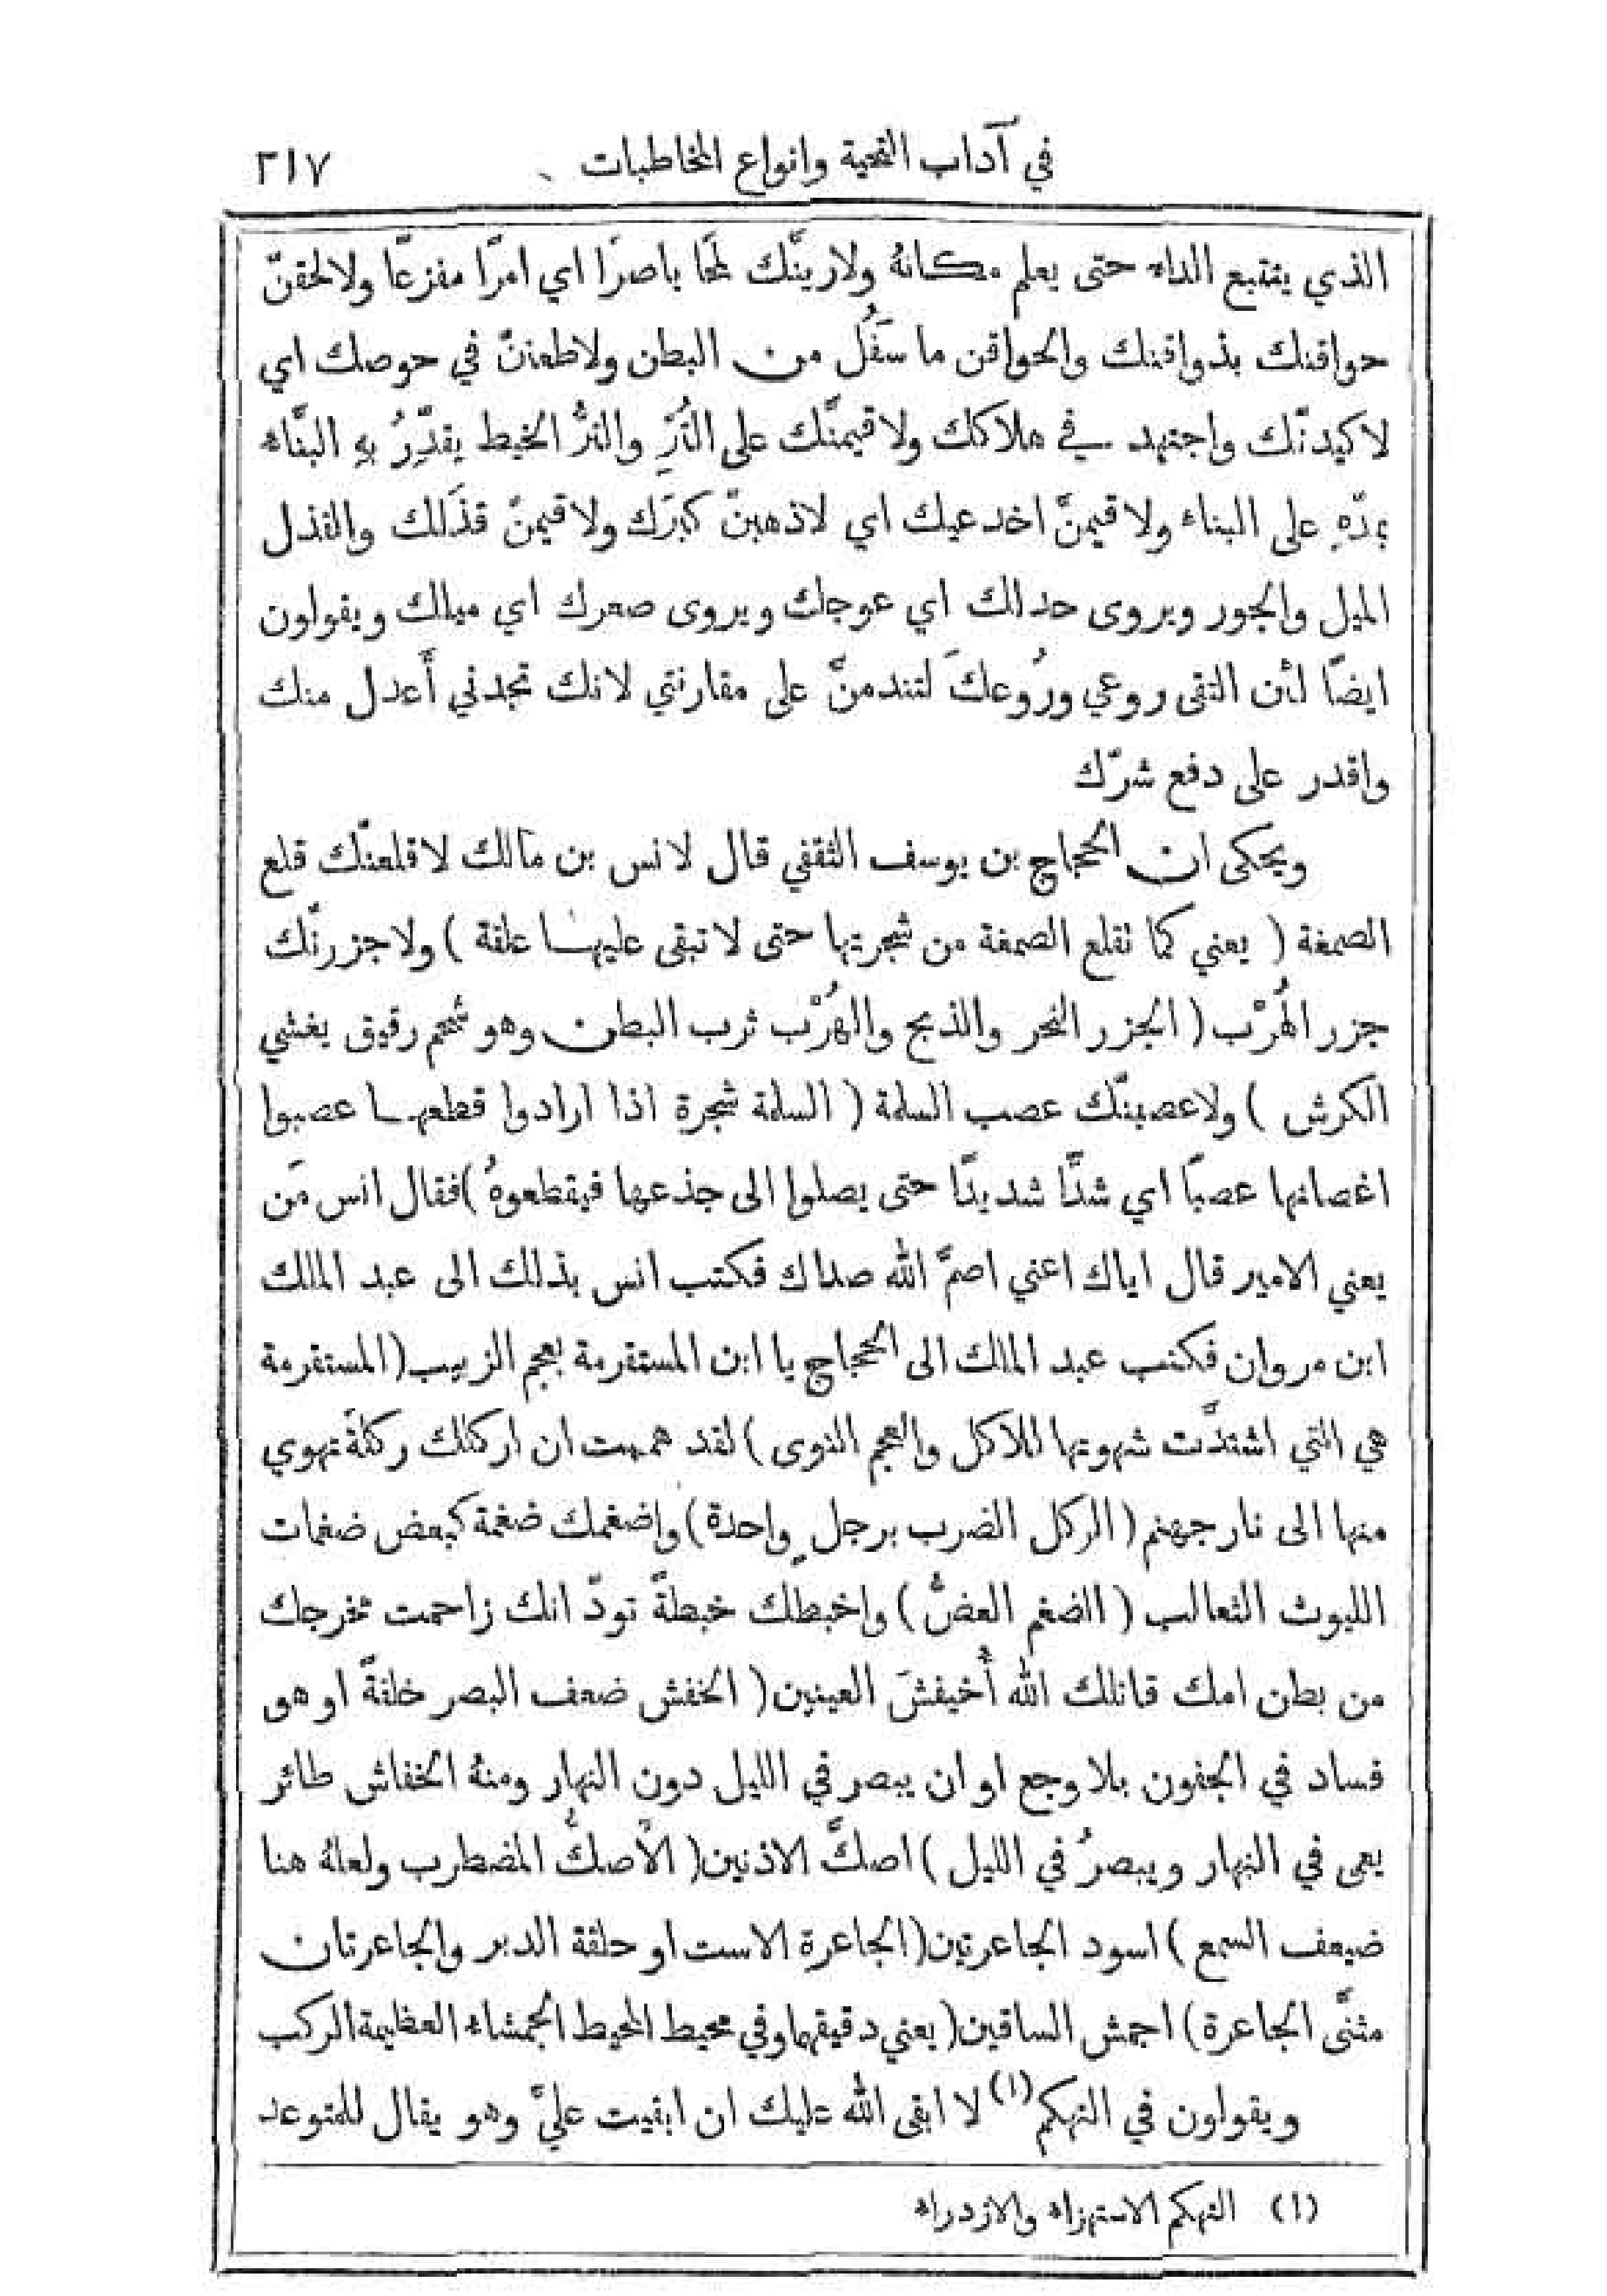 في آداب التحية وانواع المخاطبات ٣١٧
الذي يتتبع الداء حتى يعلم مكانهُ ولارينَّك لمحًا باصرًا اي امرًا مفزعًا ولالحقنّ
حواقنك بذواقنك والحواقن ما سَفُل من البطن ولاطعننّ في حوصك اي
لاكيدنّك واجتهد في هلاكك ولاقيمنَّك على التُرِّ والترُّ الخيط يقدِّرُ بهِ البنَّاء
بمدّهِ على البناء ولاقيمنَّ اخدعيك اي لاذهبنّ كبرَك ولاقيمنّ قذَلك والقذل
الميل والجور ويروى حدلك اي عوجك ويروى صعرك اي ميلك ويقولون
ايضًا لئن التقى روعي ورُوعكَ لتندمنَّ على مقارنتي لانك تجدني أَعدل منك
واقدر على دفع شرّك
ويحكى ان الحجاج بن يوسف الثقفي قال لانس بن مالك لاقلعنّك قلع
الصمغة ( يعني كما تقلع الصمغة من شجرتها حتى لا تبقى عليها علقة ) ولاجزرنّك
جزر الهُرْب ( الجزر النحر والذبح والهُرْب ثرب البطن وهو شحم رقيق يغشي
الكرش ) ولاعصبنّك عصب السلمة ( السلمة شجرة اذا ارادوا قطعها عصبوا
اغصانها عصبًا اي شدًّا شديدًا حتى يصلوا الى جذعها فيقطعوهُ )فقال انس مَن
يعني الامير قال اياك اعني اصمَّ الله صداك فكتب انس بذلك الى عبد الملك
ابن مروان فكتب عبد الملك الى الحجاج يا ابن المستقرمة بعجم الزبيب (المستقرمة
هي التي اشتدَّت شهوتها للاكل والعجم النوى ) لقد هممت ان اركلك ركلةً تهوي
منها الى نار جهنم ( الركل الضرب برجلٍ واحدة ) واضغمك ضغمة كبعض ضغمات
الليوث الثعالب ( الضغم العضُّ ) واخبطك خبطةً تودّ انك زاحمت مخرجك
من بطن امك قاتلك الله أُخيفشَ العينين ( الخفش ضعف البصر خلقةً او هو
فساد في الجفون بلا وجع او ان يبصر في الليل دون النهار ومنهُ الخفاش طائر
يعمى في النهار ويبصرُ في الليل ) اصكَّ الاذنين ( الأَصكُّ المضطرب ولعلهُ هنا
ضيعف السمع ) اسود الجاعرتين (الجاعرة الاست او حلقة الدبر والجاعرتان
مثنَّى الجاعرة ) احمش الساقين ( يعني دقيقهما وفي محيط المحيط الحمشاء العظيمة الركب
ويقولون في التهكم (١) لا ابقى الله عليك ان ابقيت عليَّ وهو يقال للمتوعد
(١) التهكم الاستهزاء والازدراء